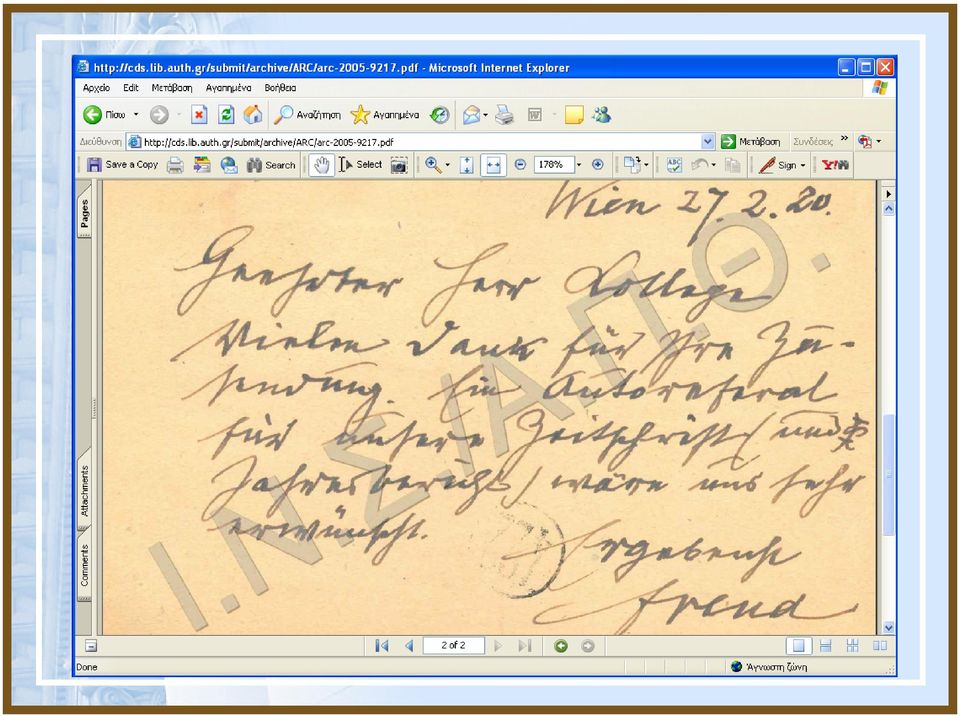 http://cds.lib.auth.gr/submit/archive/ARC/arc-2005-9217.pdf - Microsoft Internet Explorer
Αρχείο Edit Μετάβαση Αγαπημένα Βοήθεια
Πίσω Αναζήτηση Αγαπημένα
Διεύθυνση http://cds.lib.auth.gr/submit/archive/ARC/arc-2005-9217.pdf Μετάβαση Συνδέσεις »
Save a Copy Search Select 178% Sign Y!
Pages
Attachments
Comments
Wien 27. 2. 20.
Geehrter Herr College
Vielen Dank für Ihre Zu-
sendung. Ein Autoreferat
für unsere Zeitschrift (und
Jahresbericht) wäre uns sehr
erwünscht.
Ergebenst
Freud
Ι.Ν.Σ/Α.Π.Θ.
2 of 2
Done Άγνωστη ζώνη